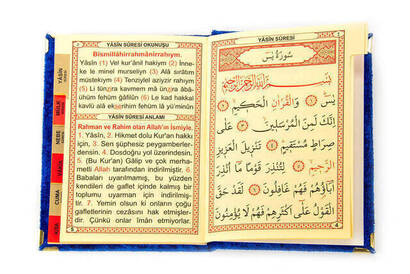 YÂSİN SÛRESİ OKUNUŞU
Bismillâhirrahmânirrahıym.
Yâsîn (1) Vel kur'ânil hakiym (2) İnne-
ke le minel murseliyn (3) Alâ sırâtım
müstekıym (4) Tenziylel aziyzir rahıym
(5) Li tünzira kavmem mâ ünzira âbâ-
ühüm fehüm ğâfilûn (6) Le kad hakkal
kavlü alâ ekserihim fehüm lâ yü'minûn
YÂSİN SÛRESİ ANLAMI
Rahman ve Rahim olan Allah'ın İsmiyle.
1. Yâsîn, 2. Hikmet dolu Kur'an hakkı
için, 3. Sen şüphesiz peygamberler-
densin. 4. Dosdoğru yol üzerindesin.
5. (Bu Kur'an) Gâlip ve çok merha-
metli Allah tarafından indirilmiştir. 6.
Babaları uyarılmamış, bu yüzden
kendileri de gaflet içinde kalmış bir
toplumu uyarman için indirilmiş-
tir. 7. Yemin olsun ki onların çoğu
gafletlerinin cezasını hak etmişler-
dir. Çünkü onlar îman etmiyorlar.
5
YÂSİN
MÜLK
NEBE
CUMA
YÂSİN SÛRESİ
سُورَةُ يٰسٓ
بِسْمِ اللّٰهِ الرَّحْمٰنِ الرَّحِيمِ
يٰسٓ ۝ وَالْقُرْاٰنِ الْحَكِيمِ ۝
اِنَّكَ لَمِنَ الْمُرْسَلِينَ ۝ عَلٰى
صِرَاطٍ مُسْتَقِيمٍ ۝ تَنْزِيلَ الْعَزِيزِ
الرَّحِيمِ ۝ لِتُنْذِرَ قَوْمًا مَٓا اُنْذِرَ
اٰبَٓاؤُهُمْ فَهُمْ غَافِلُونَ ۝ لَقَدْ حَقَّ
الْقَوْلُ عَلٰٓى اَكْثَرِهِمْ فَهُمْ لَا يُؤْمِنُونَ
4